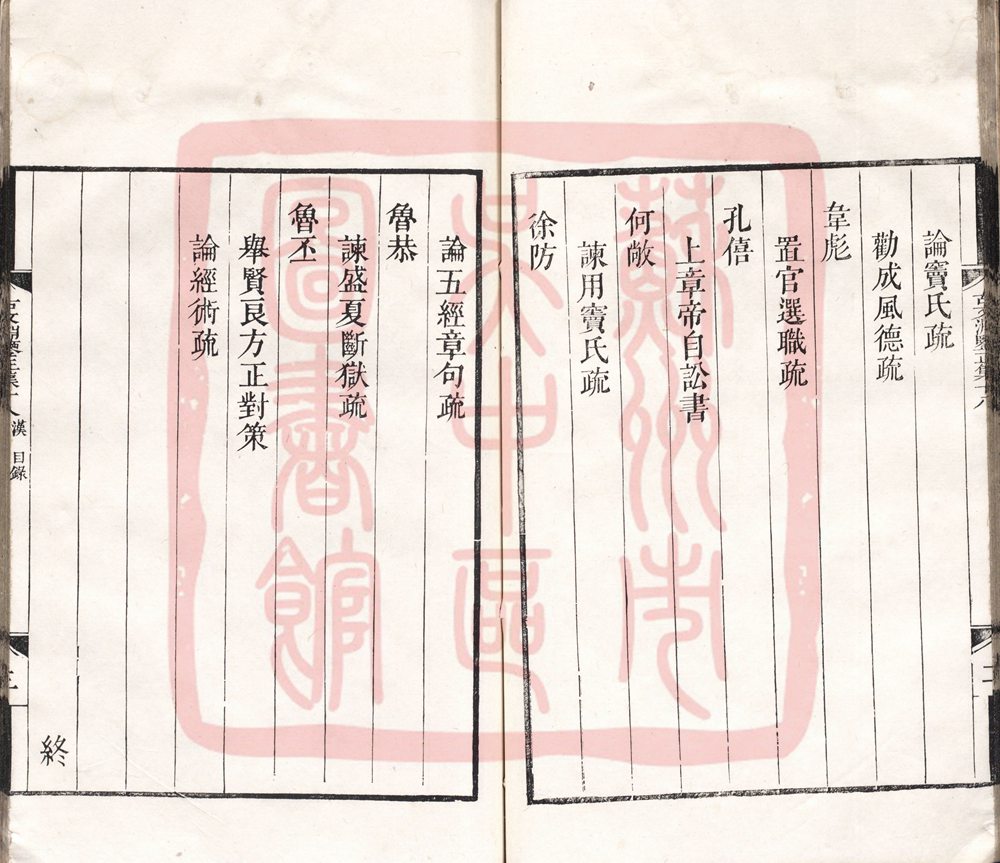 論竇氏疏
勸成風德疏
韋彪
置官選職疏
孔僖
上章帝自訟書
何敞
諫用竇氏疏
徐防
論五經章句疏
魯恭
諫盛夏斷獄疏
魯丕
舉賢良方正對策
論經術疏
終
漢 目錄
蘇州市
吳中區
圖書館